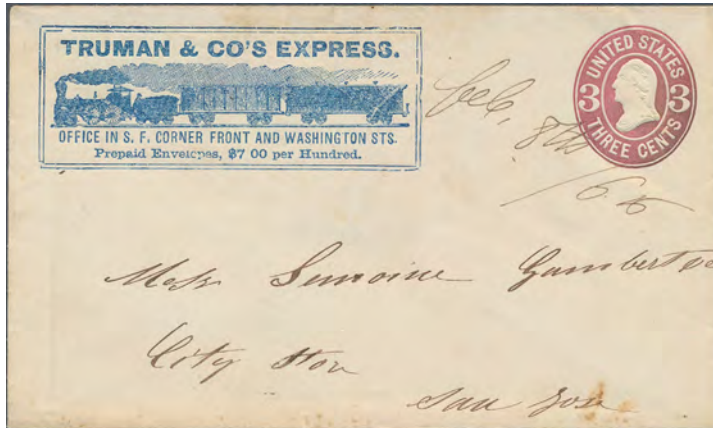 TRUMAN & CO'S EXPRESS.
OFFICE IN S. F. CORNER FRONT AND WASHINGTON STS.
Prepaid Envelopes, $7 00 per Hundred.
UNITED STATES
3 3
THREE CENTS
8th
/65
City Stor
San Jose